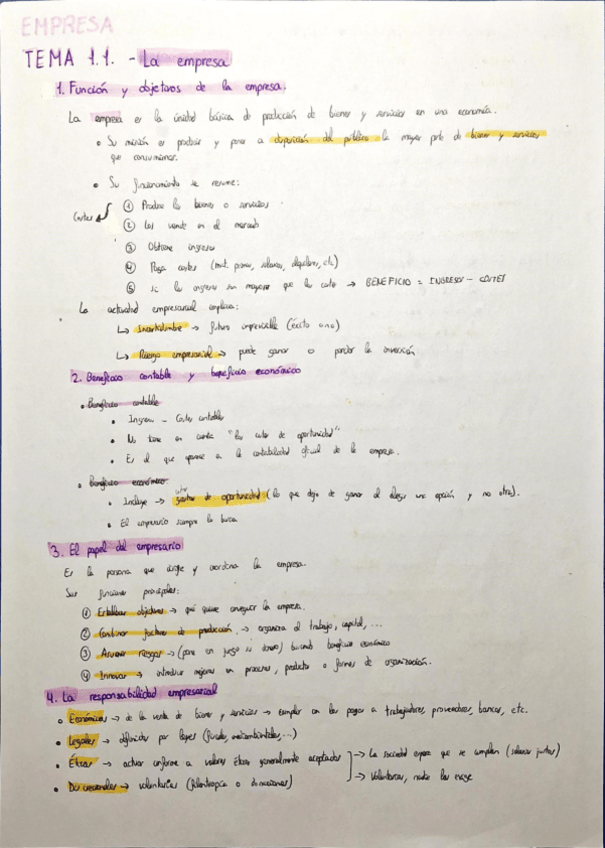 EMPRESA
TEMA 1.1. - La empresa
1. Función y objetivos de la empresa.
La empresa es la unidad básica de producción de bienes y servicios en una economía.
• Su misión es producir y poner a disposición del público la mayor parte de bienes y servicios
que consumimos.
• Su funcionamiento se resume:
① Produce los bienes o servicios
Costes
② Los vende en el mercado
③ Obtiene ingresos
④ Paga costes (mat. primas, salarios, alquileres, etc)
⑤ si los ingresos son mayores que los costes → BENEFICIO = INGRESOS - COSTES
La actividad empresarial implica:
↳ Incertidumbre → futuro impredecible (éxito o no)
↳ Riesgo empresarial → puede ganar o perder la inversión
2. Beneficio contable y beneficio económico
• Beneficio contable
• Ingresos - Costes contables
• No tiene en cuenta "los costes de oportunidad"
• Es el que aparece en la contabilidad oficial de la empresa.
• Beneficio económico
• Incluye → de oportunidad (lo que dejo de ganar al elegir una opción y no otra).
• El empresario siempre lo busca
3. El papel del empresario
Es la persona que dirige y coordina la empresa.
Sus funciones principales:
① Establecer objetivos → qué quiere conseguir la empresa.
② Combinar factores de producción → organiza el trabajo, capital, ...
③ Asumir riesgos → (pone en juego su dinero) buscando beneficio económico
④ Innovar → introducir mejoras en procesos, productos o formas de organización.
4. La responsabilidad empresarial
• Económicas → de la venta de bienes y servicios → cumplir con los pagos a trabajadores, proveedores, bancos, etc.
• Legales → definidas por leyes (fiscales, medioambientales,...)
• Éticas → actuar conforme a valores éticos generalmente aceptados → La sociedad espera que se cumplan (salarios justos)
• Discrecionales → voluntarias (filantropía o donaciones) → Voluntarias, nadie las exige